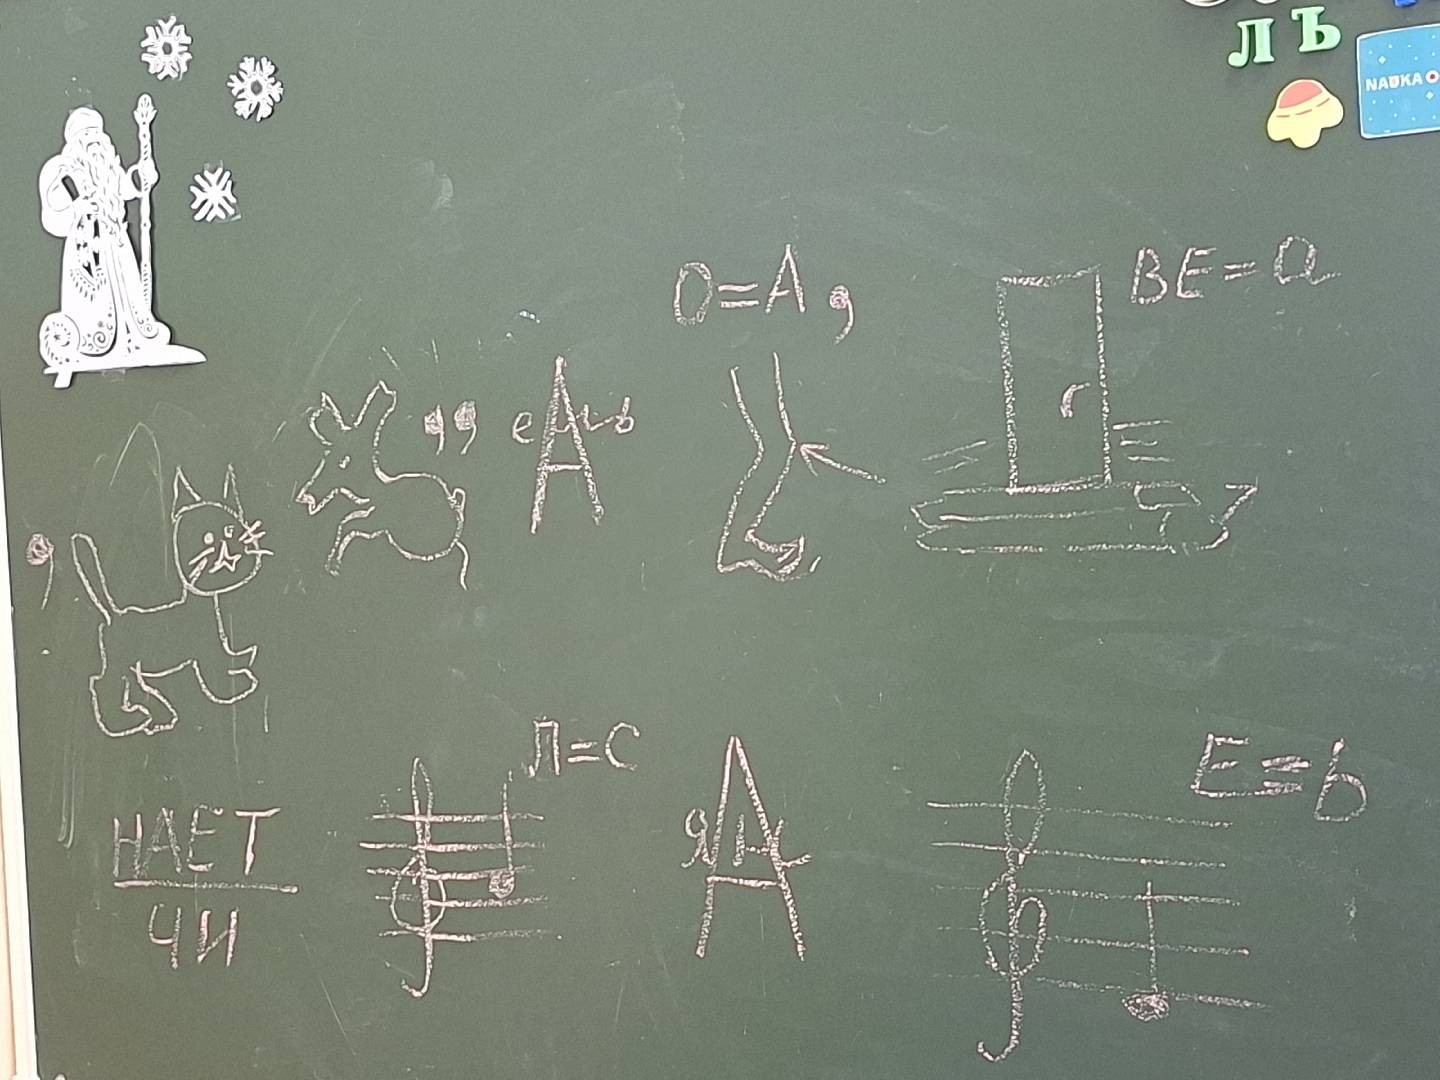 Л Ъ
NAUKA
О=А,
ВЕ=а
,
,, ель А
Л=С
Е=Ь
НАЕТ
ЧИ
А